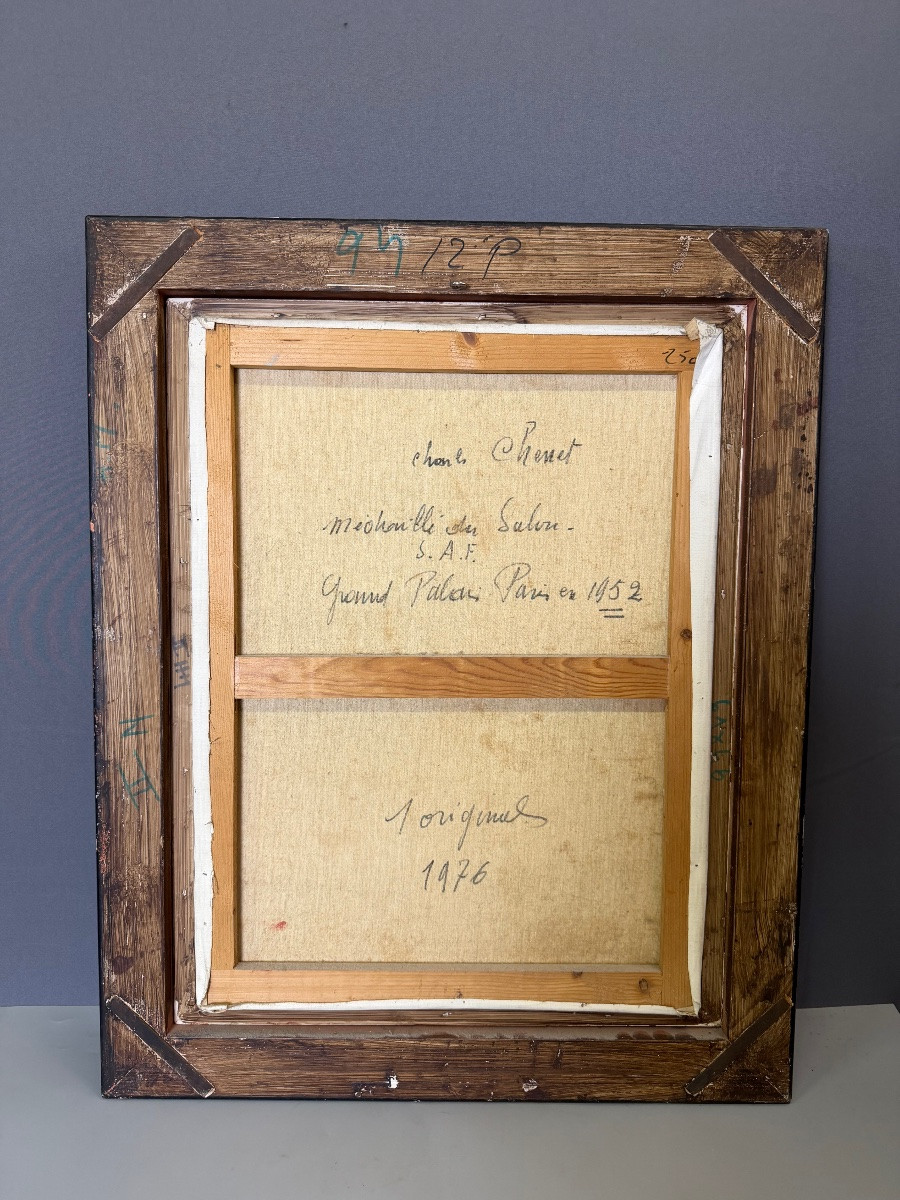 12 P
250
charles Chenet
médaillé du Salon -
S. A. F.
Grand Palais Paris en 1952
1 original
1976